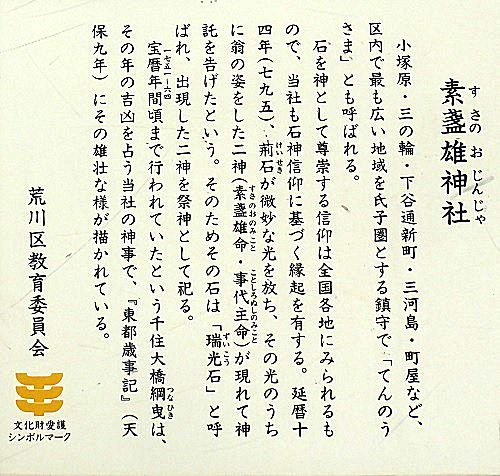 素盞雄神社
すさのおじんじゃ
小塚原・三の輪・下谷通新町・三河島・町屋など、
区内で最も広い地域を氏子圏とする鎮守で「てんのう
さま」とも呼ばれる。
石を神として尊崇する信仰は全国各地にみられるも
ので、当社も石神信仰に基づく縁起を有する。延暦十
四年（七九五）、荊石が微妙な光を放ち、その光のうち
けいせき
に翁の姿をした二神（素盞雄命・事代主命）が現れて神
すさのおのみこと ことしろぬしのみこと
託を告げたという。そのためその石は「瑞光石」と呼
ずいこう
ばれ、出現した二神を祭神として祀る。
宝暦年間頃まで行われていたという千住大橋綱曳は、
一七五一-六四 つなひき
その年の吉凶を占う当社の神事で、『東都歳事記』（天
保九年）にその雄壮な様が描かれている。
荒川区教育委員会
文化財愛護
シンボルマーク